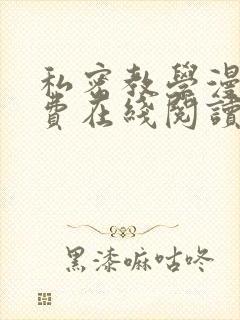 私密教學漫
費在綫閱讀
黑漆嘛咕咚